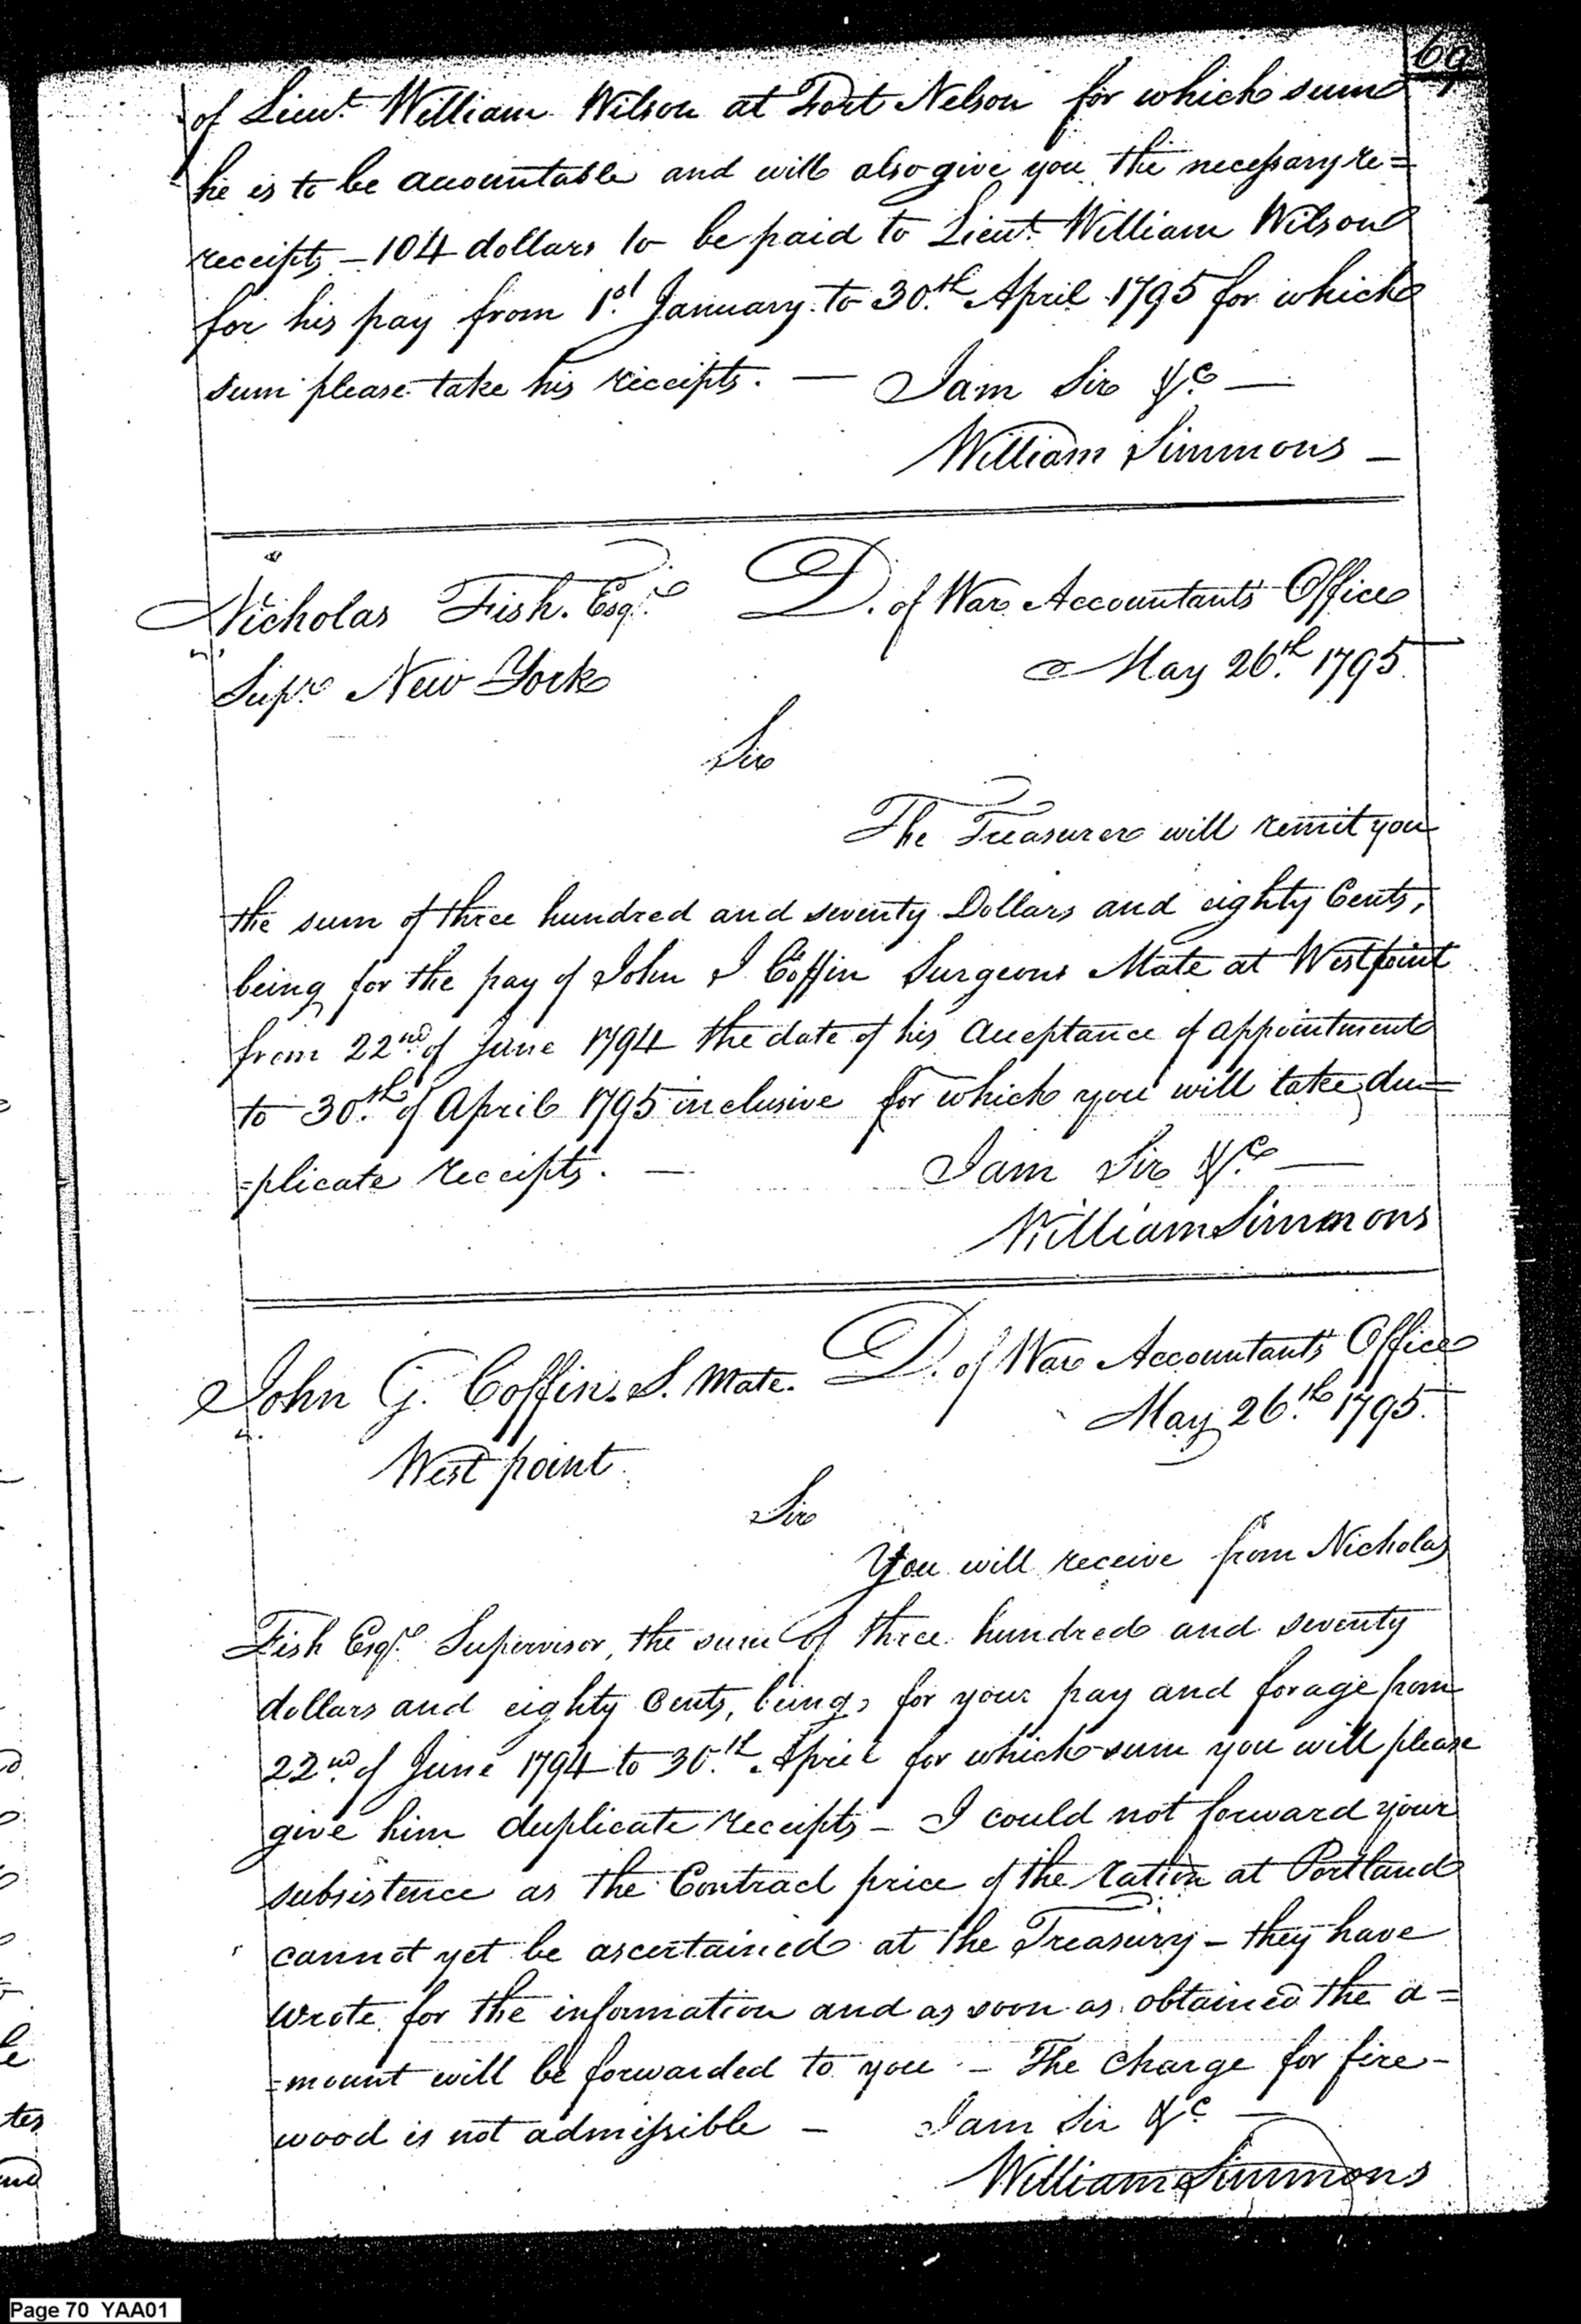 69
of Lieut. William Wilson at Fort Nelson for which sum
he is to be accountable and will also give you the necessary re=
receipts - 104 dollars to be paid to Lieut. William Wilson
for his pay from 1st January to 30th April 1795 for which
sum please take his receipts. — I am Sir &c —
William Simmons —
Nicholas Fish. Esqre D. of War Accountants Office
Supr New York May 26th 1795
Sir
The Treasurer will remit you
the sum of three hundred and seventy Dollars and eighty Cents,
being for the pay of John I Coffin Surgeons Mate at Westpoint
from 22nd of June 1794 the date of his acceptance of appointment
to 30th of April 1795 inclusive for which you will take du=
=plicate receipts. — I am Sir &c —
William Simmons
John G. Coffin. S. Mate. D. of War Accountants Office
May 26th 1795.
West point
Sir
You will receive from Nicholas
Fish Esqr Supervisor, the sum of three hundred and seventy
dollars and eighty Cents, being, for your pay and forage from
22nd of June 1794 to 30th April for which sum you will please
give him duplicate receipts - I could not forward your
subsistence as the Contract price of the ration at Portland
cannot yet be ascertained at the Treasury - they have
wrote for the information and as soon as obtained the a=
=mount will be forwarded to you - The Charge for fire-
wood is not admissible - I am Sir &c —
William Simmons
Page 70 YAA01